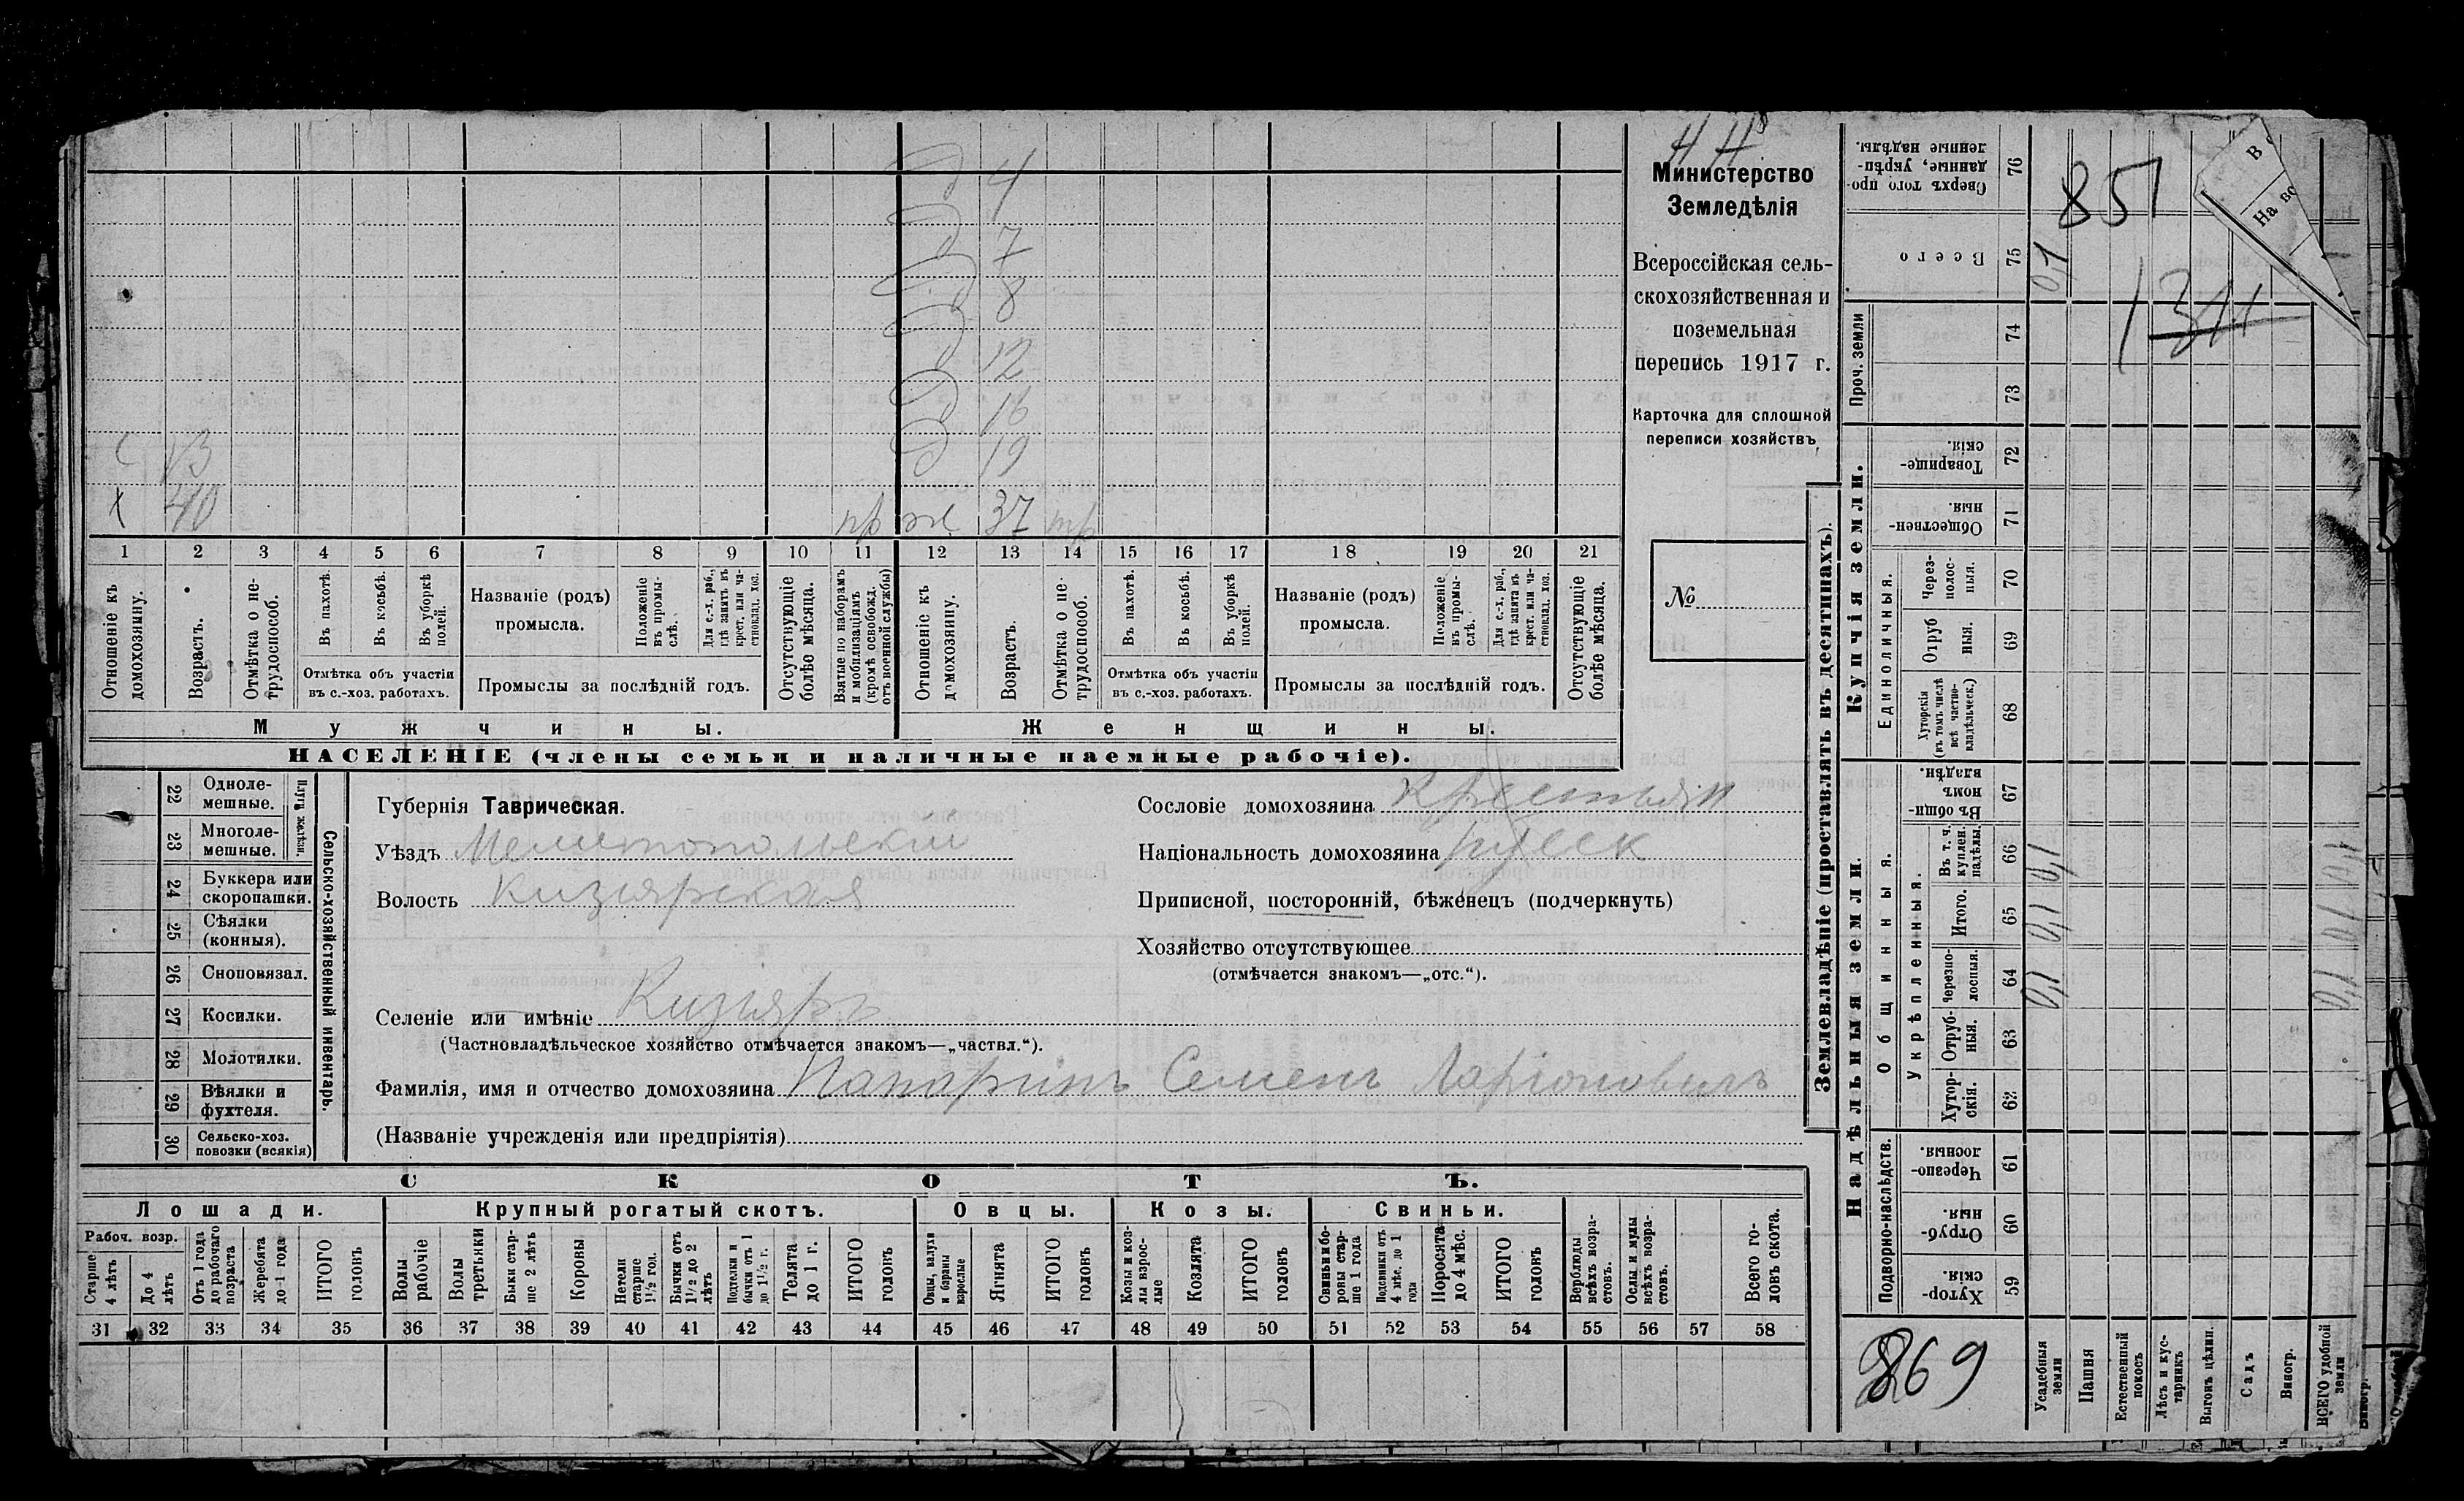 НН
Министерство
Земледѣлія
Всероссійская сель-
скохозяйственная и
поземельная
перепись 1917 г.
Карточка для сплошной
переписи хозяйствъ
№
д 4
д 7
д 8
д 12
д 16
с 13 д 19
х 40 пр ж 37 тр
1 2 3 4 5 6 7 8 9 10 11 12 13 14 15 16 17 18 19 20 21
Отношеніе къ домохозяину.
Возрастъ.
Отмѣтка о не-трудоспособ.
Въ пахотѣ.
Въ косьбѣ.
Въ уборкѣ полей.
Отмѣтка объ участіи
въ с.-хоз. работахъ.
Названіе (родъ)
промысла.
Положеніе въ промы-слѣ.
Для с.-х. раб., гдѣ занятъ въ крест. или ча-стновлад. хоз.
Промыслы за послѣдній годъ.
Отсутствующіе болѣе мѣсяца.
Взятые по наборамъ и мобилизаціямъ (кромѣ освобожд. отъ военной службы)
Отношеніе къ домохозяину.
Возрастъ.
Отмѣтка о не-трудоспособ.
Въ пахотѣ.
Въ косьбѣ.
Въ уборкѣ полей.
Отмѣтка объ участіи
въ с.-хоз. работахъ.
Названіе (родъ)
промысла.
Положеніе въ промы-слѣ.
Для с.-х. раб., гдѣ занята въ крест. или ча-стновлад. хоз.
Промыслы за послѣдній годъ.
Отсутствующіе болѣе мѣсяца.
Мужчины. Женщины.
НАСЕЛЕНІЕ (члены семьи и наличные наемные рабочіе).
22 Одноле-мешные.
23 Многоле-мешные.
Плуги желѣзн.
24 Буккера или скоропашки.
25 Сѣялки (конныя).
26 Сноповязал.
27 Косилки.
28 Молотилки.
29 Вѣялки и фухтеля.
30 Сельско-хоз. повозки (всякія)
Сельско-хозяйственный инвентарь.
Губернія Таврическая.
Уѣздъ Мелитопольскій
Волость Кизіярская
Сословіе домохозяина Крестьян
Національность домохозяина русск
Приписной, посторонній, бѣженец (подчеркнуть)
Хозяйство отсутствующее
(отмѣчается знакомъ—„отс.“).
Селеніе или имѣніе Кизіяръ
(Частновладѣльческое хозяйство отмѣчается знакомъ—„частвл.“).
Фамилія, имя и отчество домохозяина Папаринъ Семенъ Ларіоновичъ
(Названіе учрежденія или предпріятія)
СКОТЪ.
Лошади. Крупный рогатый скотъ. Овцы. Козы. Свиньи.
Рабоч. возр.
Старше 4 лѣтъ
До 4 лѣтъ
Отъ 1 года до рабочаго возраста
Жеребята до 1 года
ИТОГО головъ
Волы рабочіе
Волы третьяки
Быки стар-ше 2 лѣтъ
Коровы
Нетели старше 1½ год.
Бычки отъ 1½ до 2 лѣтъ
Подтелки и бычки отъ 1 до 1½ г.
Телята до 1 г.
ИТОГО головъ
Овцы, валухи и бараны взрослые
Ягнята
ИТОГО головъ
Козы и коз-лы взрос-лые
Козлята
ИТОГО головъ
Свиньи и бо-ровы стар-ше 1 года
Подсвинки отъ 4 мѣс. до 1 года
Поросята до 4 мѣс.
ИТОГО головъ
Верблюды всѣхъ возра-стовъ.
Ослы и мулы всѣхъ возра-стовъ.
Всего го-ловъ скота.
31 32 33 34 35 36 37 38 39 40 41 42 43 44 45 46 47 48 49 50 51 52 53 54 55 56 57 58
Землевладѣніе (проставлять въ десятинахъ).
Сверхъ того про-данные, укрѣп-ленные надѣлы. 76
Всего 75 0,1
Проч. земли 74
73
Купчія земли.
Товарище-скія. 72
Обществен-ныя. 71
Единоличныя.
Через-полос-ныя. 70
Отруб ныя. 69
Хуторскія (въ томъ числѣ всѣ частно-владѣльческ.) 68
Надѣльныя земли.
Общинныя.
Въ общи-номъ владѣн. 67
Укрѣпленныя.
Въ т. ч. куплен. надѣлы. 66 0,1
Итого. 65 0,1
Черезпо-лосныя. 64 0,1
Отруб-ныя. 63
Хутор-скія. 62
Подворно-наслѣдств.
Черезпо-лосныя. 61
Отруб-ныя. 60
Хутор-скія. 59
0,1 0,1 0,1
Усадебныя земли
Пашня
Естественный покосъ
Лѣсъ и кус-тарникъ
Выгонъ цѣлин.
Садъ
Виногр.
ВСЕГО удобной земли
851
869
В
На во